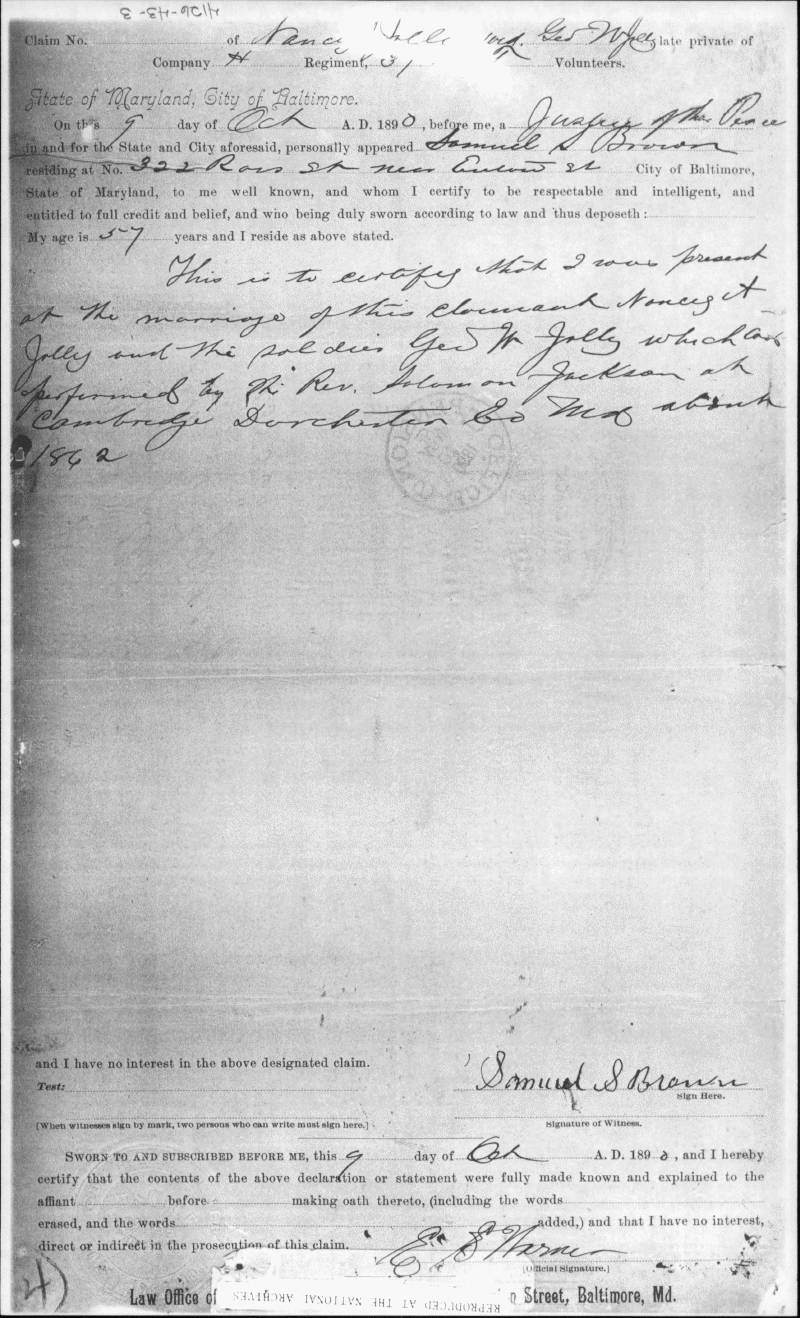 41126-43-3
Claim No. of Nancy Jolly wid. Geo W Jolly late private of
Company H Regiment, 31 Volunteers.
State of Maryland, City of Baltimore.
On this 9 day of Oct A. D. 1890, before me, a Justice of the Peace
in and for the State and City aforesaid, personally appeared Samuel S Brown
residing at No. 322 Ross St near St City of Baltimore,
State of Maryland, to me well known, and whom I certify to be respectable and intelligent, and
entitled to full credit and belief, and who being duly sworn according to law and thus deposeth:
My age is 57 years and I reside as above stated.
This is to certify that I was present
at the marriage of this claimant Nancy A
Jolly and the soldier Geo W Jolly which was
performed by the Rev. Solomon Jackson at
Cambridge Dorchester Co Md about
1862
and I have no interest in the above designated claim.
Test: Samuel S Brown
Sign Here.
[When witnesses sign by mark, two persons who can write must sign here.] Signature of Witness.
SWORN TO AND SUBSCRIBED BEFORE ME, this 9 day of Oct A. D. 1890, and I hereby
certify that the contents of the above declaration or statement were fully made known and explained to the
affiant before making oath thereto, (including the words
erased, and the words added,) and that I have no interest,
direct or indirect in the prosecution of this claim. E. S. Warner
[Official Signature.]
4)
Law Office of n Street, Baltimore, Md.
REPRODUCED AT THE NATIONAL ARCHIVES